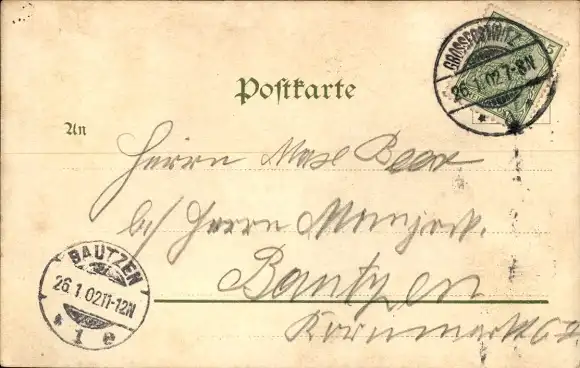 5
GROSSPOSTWITZ
26.1.02.7-8N
Postkarte
An
Herrn Max Beer
b/ Herrn
Bautzen
Kornmarkt
BAUTZEN
26.1.02 11-12N
1 e